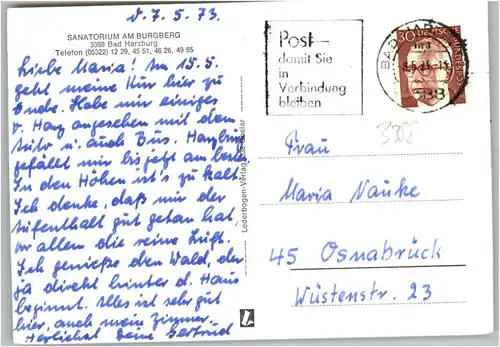 d. 7. 5. 73.
SANATORIUM AM BURGBERG
3388 Bad Harzburg
Telefon (05322) 12 29, 45 51, 46 26, 49 65
Liebe Maria! Am 15.5.
geht meine Kur hier zu
Ende. Habe mir einiges
v. Harz angesehen mit dem
Auto u. auch Bus. Harzburg
gefällt mir bis jetzt am besten
In den Höhen ist's zu kalt.
Ich denke, daß mir der
Aufenthalt gut getan hat,
vor allem die reine Luft.
Ich genieße den Wald, der
ja direkt hinter d. Haus
beginnt. Alles ist sehr gut
hier, auch mein Zimmer.
Herzlichst Deine Gertrud
Lederbogen-Verlag 338 Goslar
Post –
damit Sie
in
Verbindung
bleiben
BAD HARZ
30 DEUTSCHE BUNDESPOST
3388
Frau
Maria Nauke
45 Osnabrück
Wüstenstr. 23